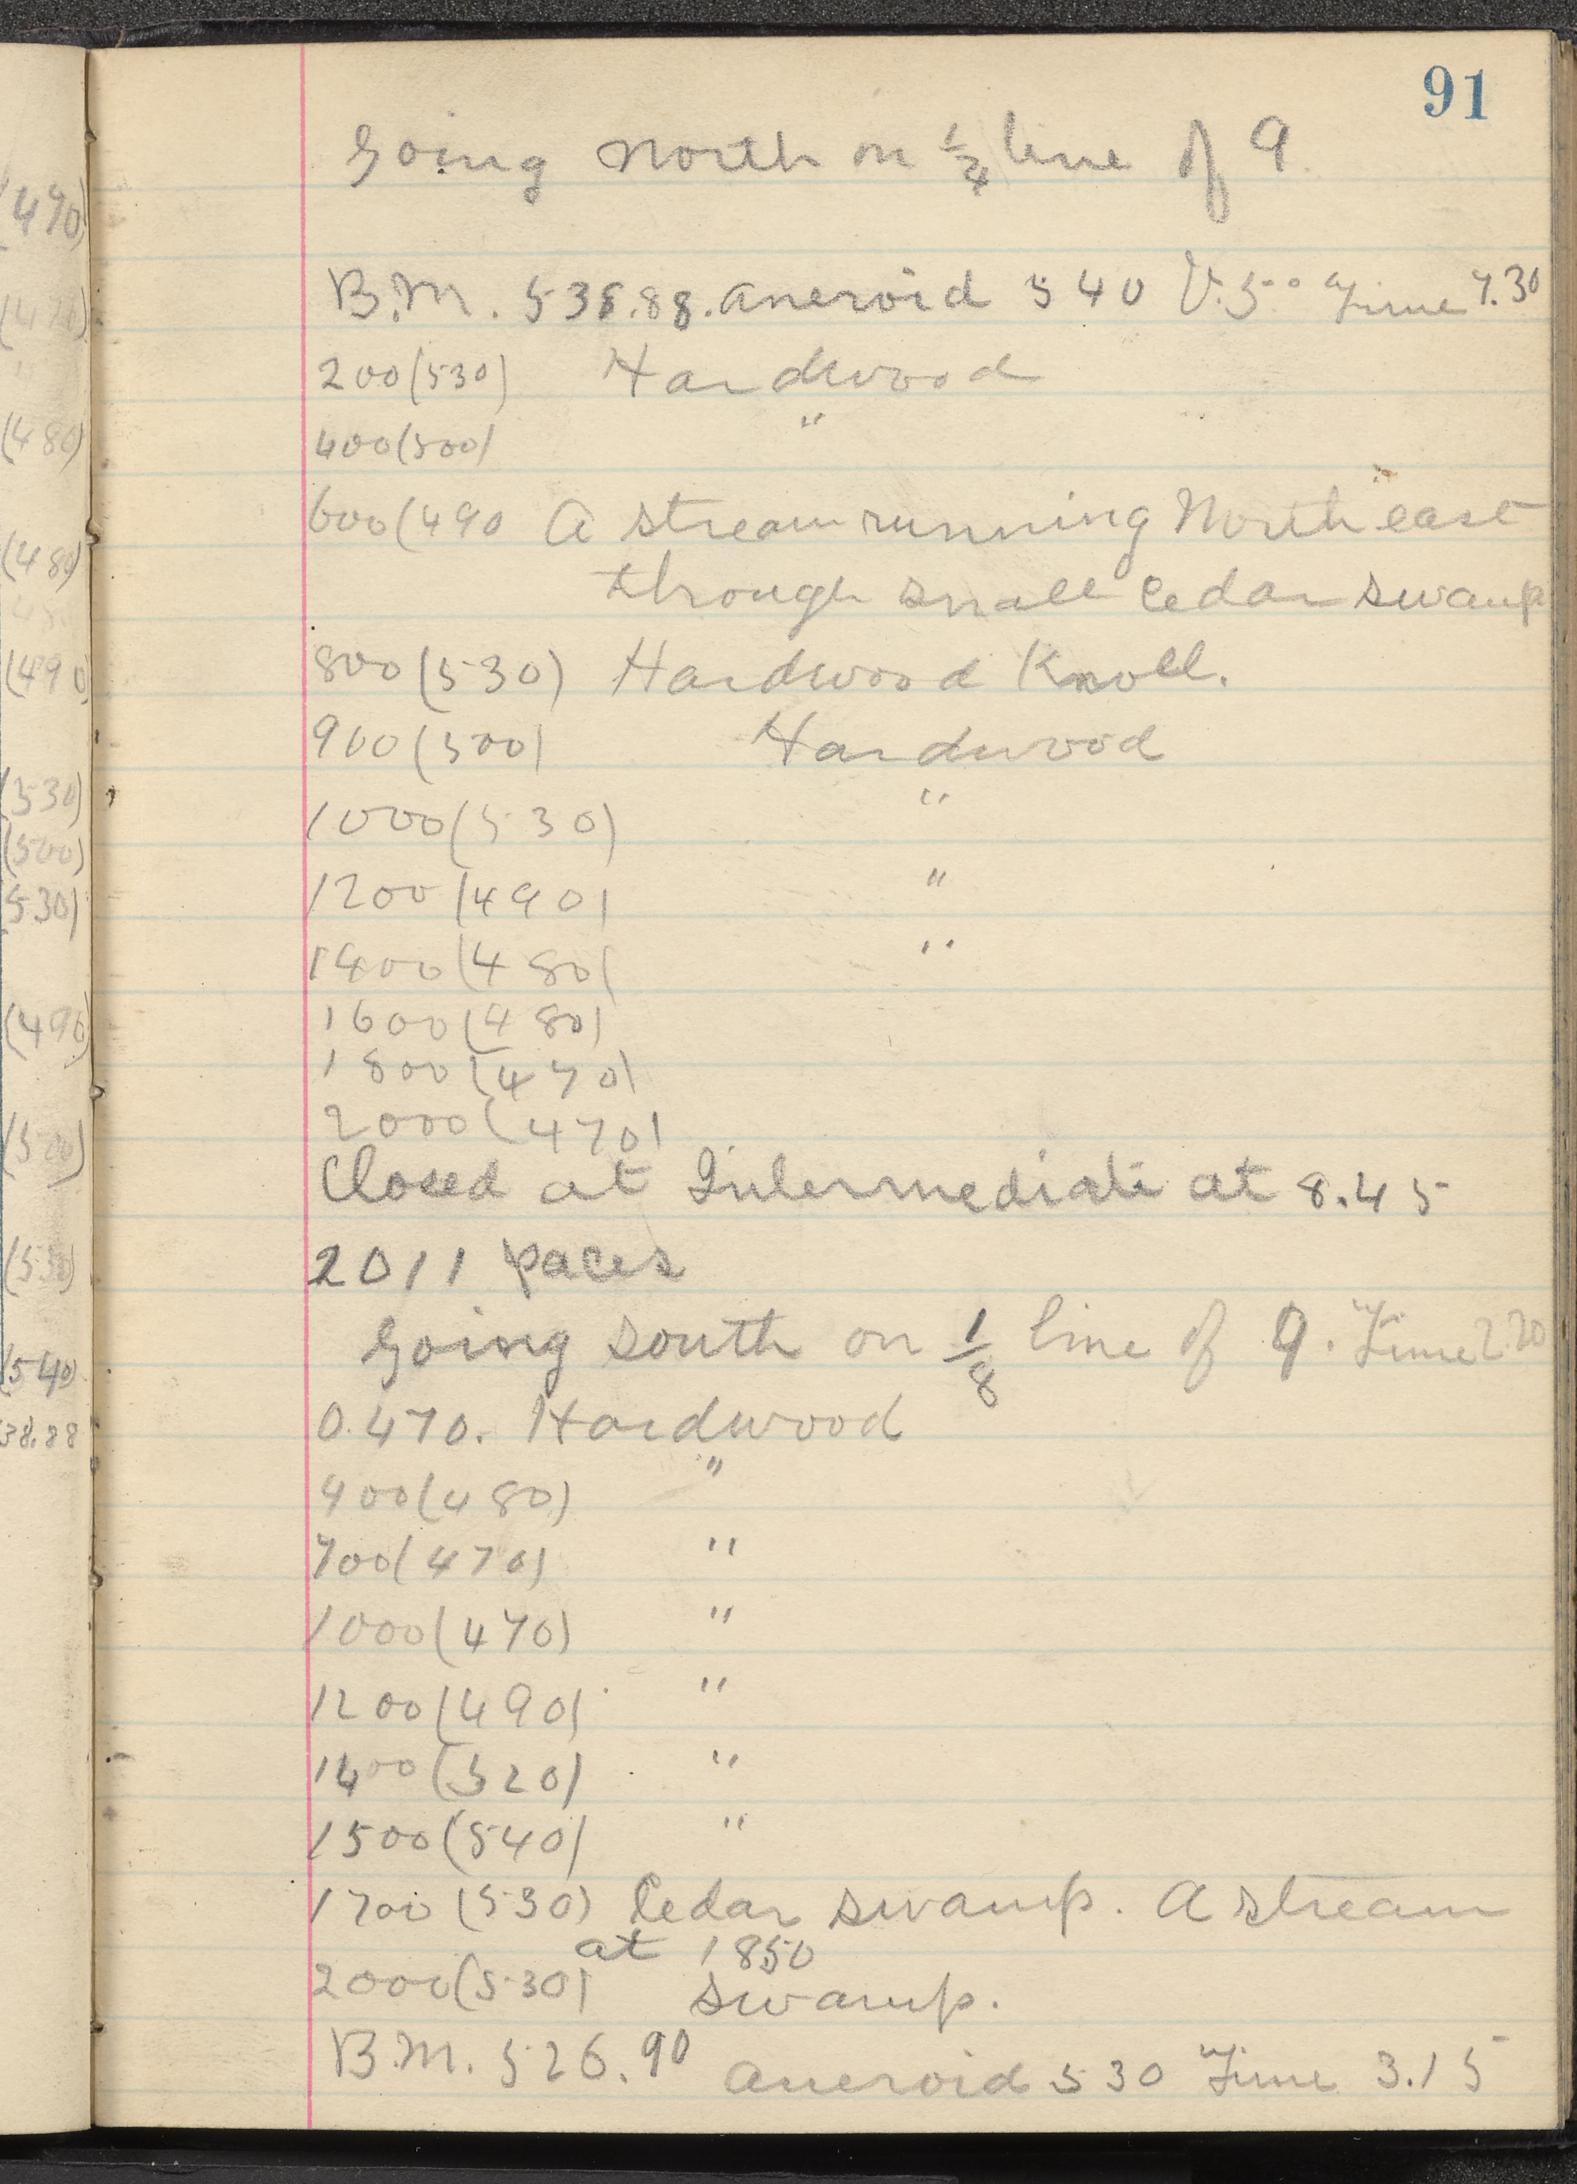 91
Going north on 1/4 line of 9
B.M. 538.88. aneroid 540 V.5° Time 7.30
200(530) Hardwood
400(500) "
600(490 A stream running North east
through small cedar swamp
800(530) Hardwood Knoll.
900(500) Hardwood
1000(530) "
1200(490) "
1400(480( "
1600(480)
1800(470)
2000(470)
Closed at Intermediate at 8.45
2011 paces
Going south on 1/8 line of 9. Time 2.20
0.470. Hardwood
400(480) "
700(470) "
1000(470) "
1200(490) "
1400(520) "
1500(540) "
1700(530) Cedar swamp. A stream
at 1850
2000(530) swamp.
B.M. 526.90 aneroid 530 Time 3.15
(490)
(480)
(480)
(490)
(530)
(500)
530)
(490)
(500)
(540)
38.88